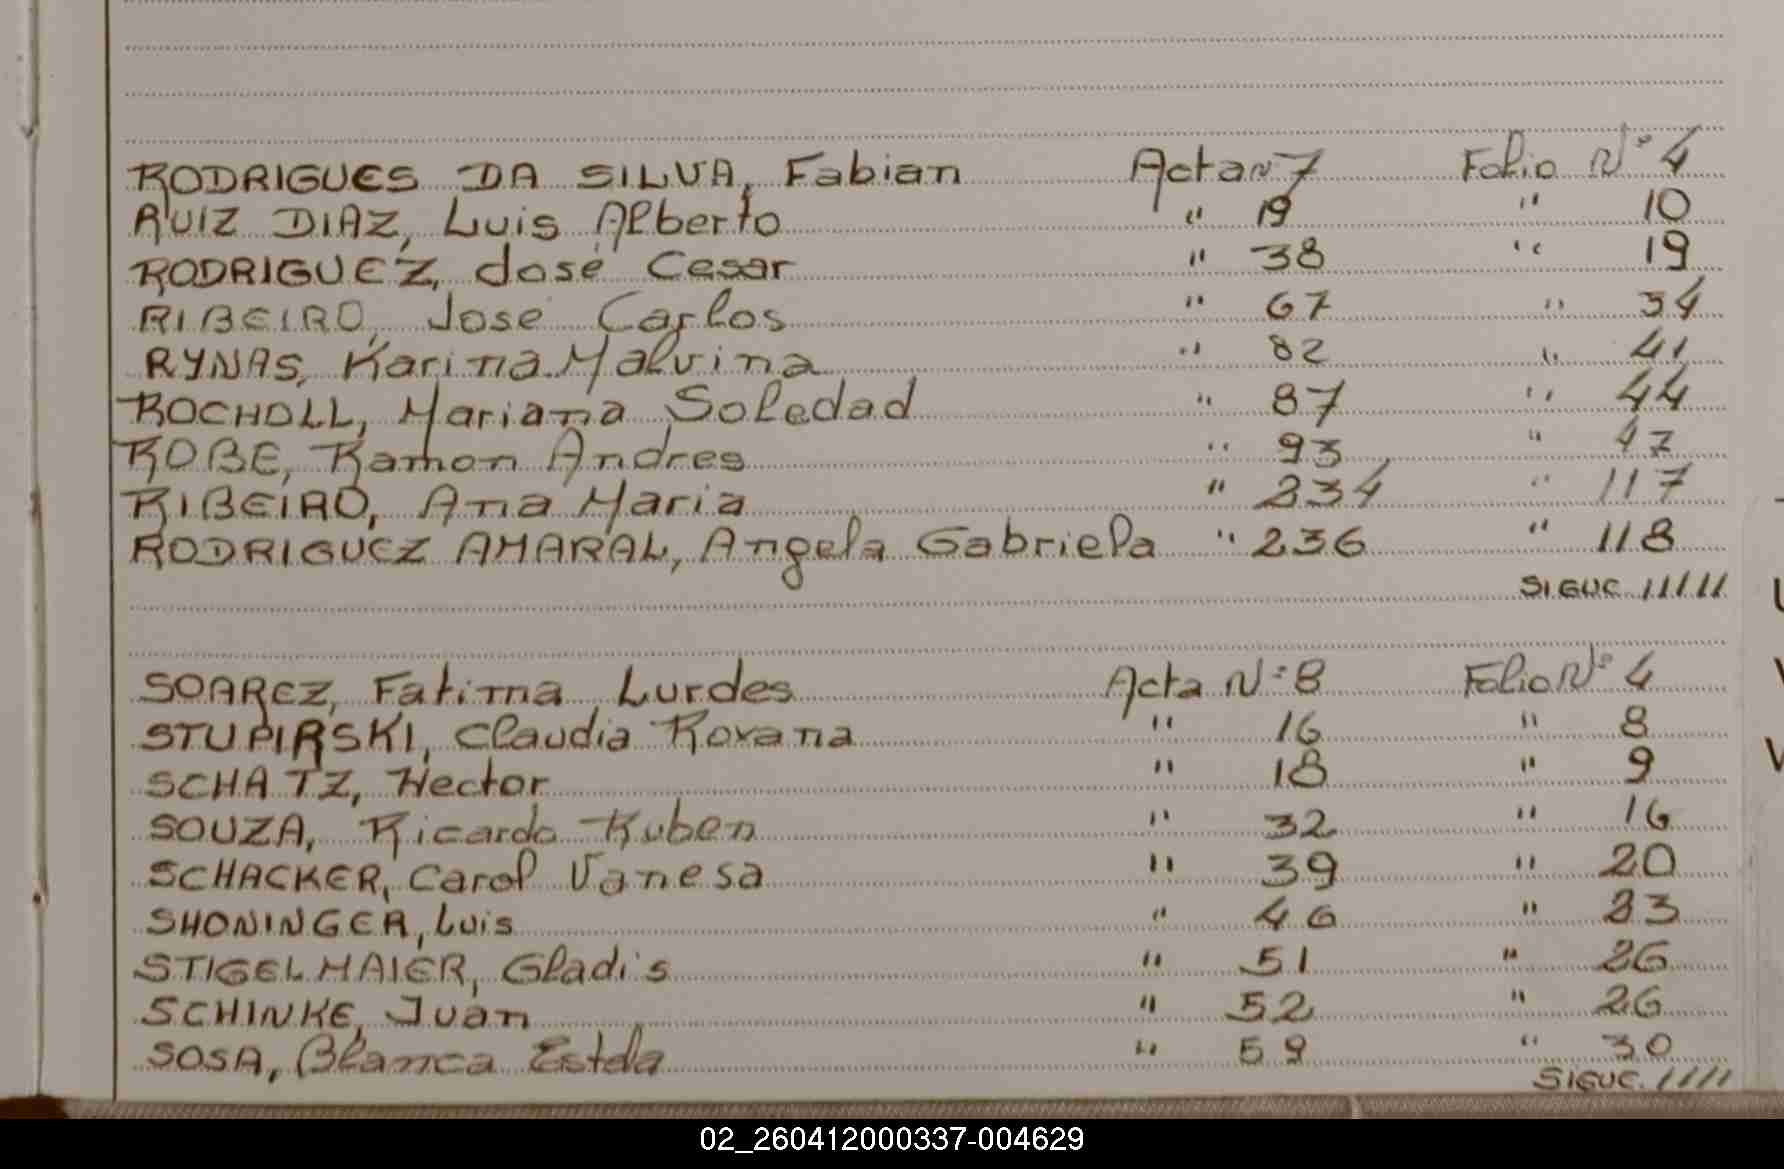 RODRIGUES DA SILVA, Fabian Acta N 7 Folio N° 4
RUIZ DIAZ, Luis Alberto " 19 " 10
RODRIGUEZ, José Cesar " 38 " 19
RIBEIRO, José Carlos " 67 " 34
RYNAS, Karina Malvina " 82 " 41
ROCHOLL, Mariana Soledad " 87 " 44
ROBE, Ramon Andres " 93 " 47
RIBEIRO, Ana Maria " 234 " 117
RODRIGUEZ AMARAL, Angela Gabriela " 236 " 118
SIGUE /////
SOAREZ, Fatima Lurdes Acta N° 8 Folio N° 4
STUPIRSKI, Claudia Roxana " 16 " 8
SCHATZ, Hector " 18 " 9
SOUZA, Ricardo Ruben " 32 " 16
SCHACKER, Carol Vanesa " 39 " 20
SHONINGER, Luis " 46 " 23
STIGELMAIER, Gladis " 51 " 26
SCHINKE, Juan " 52 " 26
SOSA, Blanca Estela " 59 " 30
SIGUE. ////
02_260412000337-004629